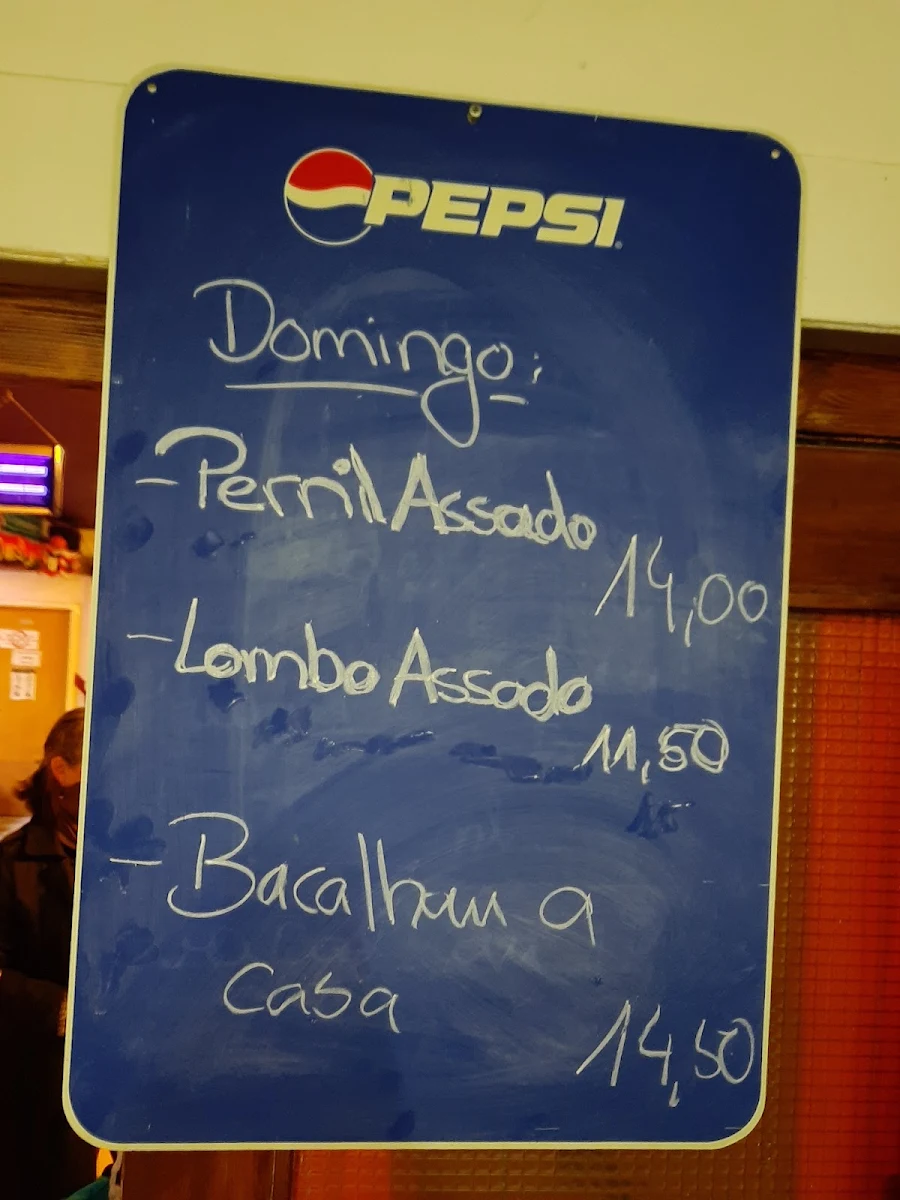 PEPSI
Domingo:
- Pernil Assado
14,00
- Lombo Assado
11,50
- Bacalhau a
casa
14,50